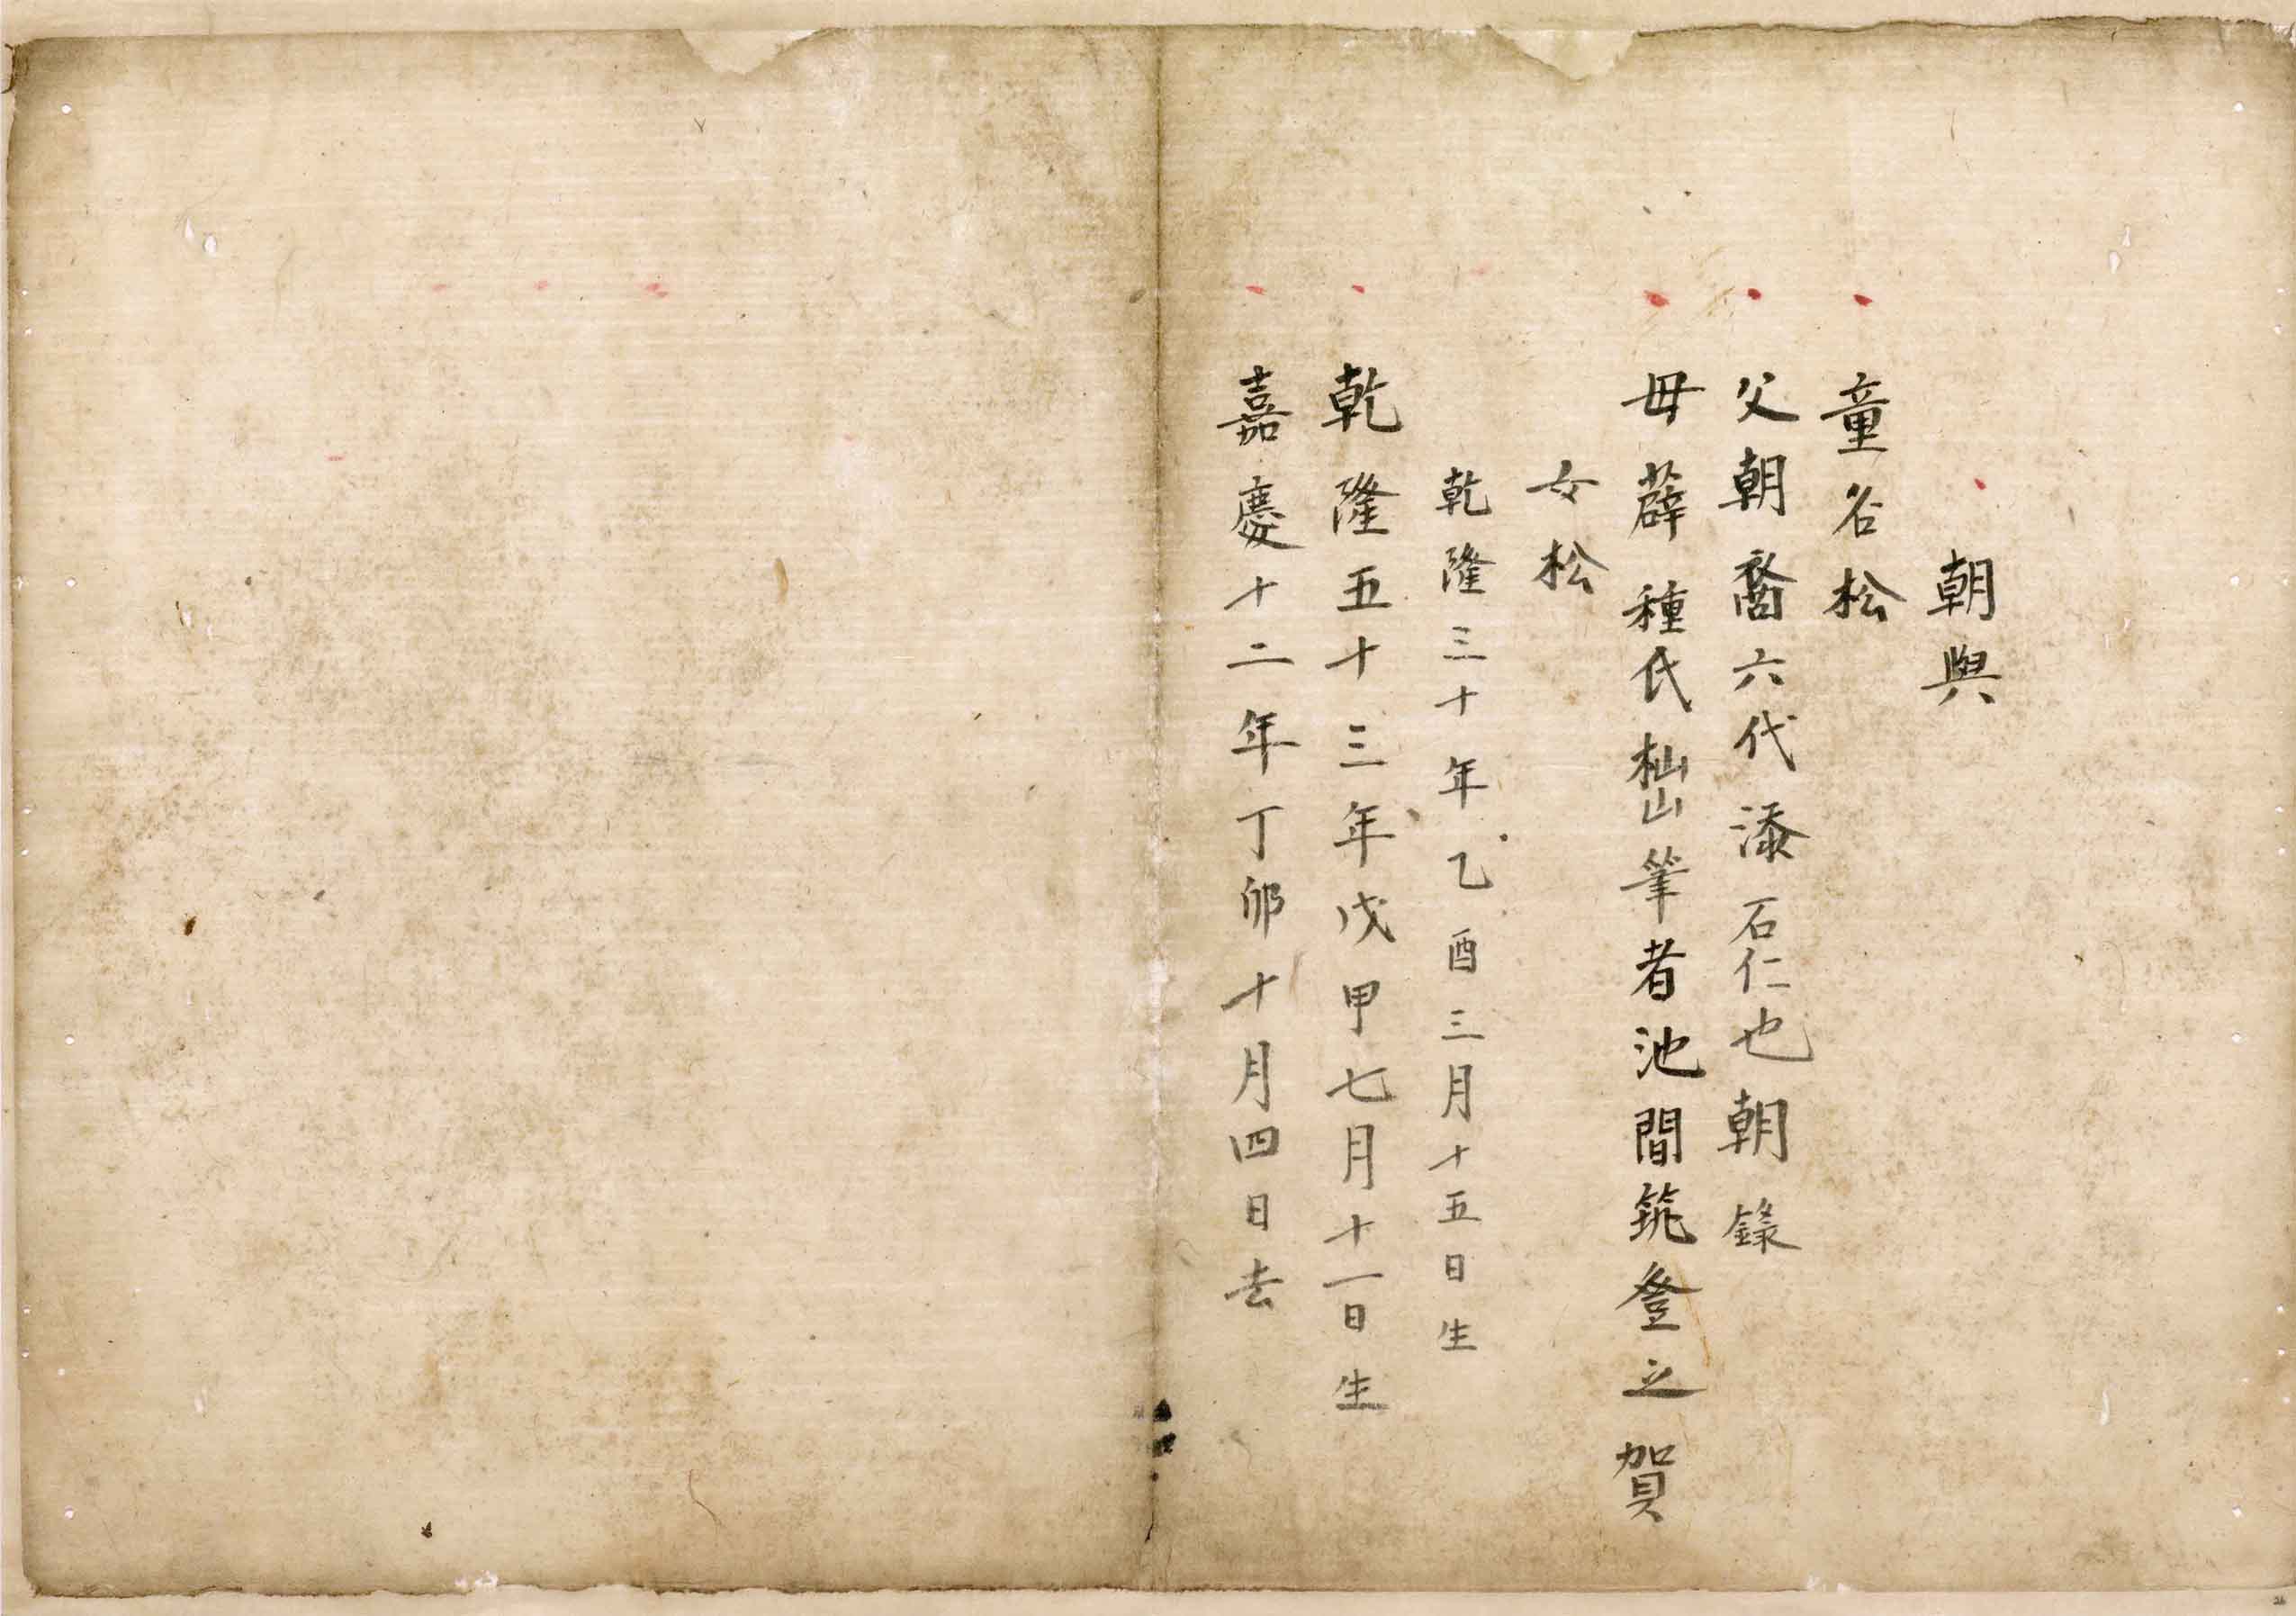 朝與
童名松
父朝裔六代添石仁也朝錄
母薜種氏杣山筆者池間筑登之賀
女松
乾隆三十年乙酉三月十五日生
乾隆五十三年戊申七月十一日生
嘉慶十二年丁卯十月四日去